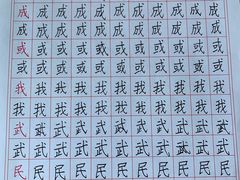 成成成成成成成成成成
成成成成成成成成成成
或或或或或或或或或或
或或或或或或或或或或
我我我我我我我我我我
我我我我我我我我我我
武武武武武武武武武武
武武武武武武武武武武
民民民民民民民民民民